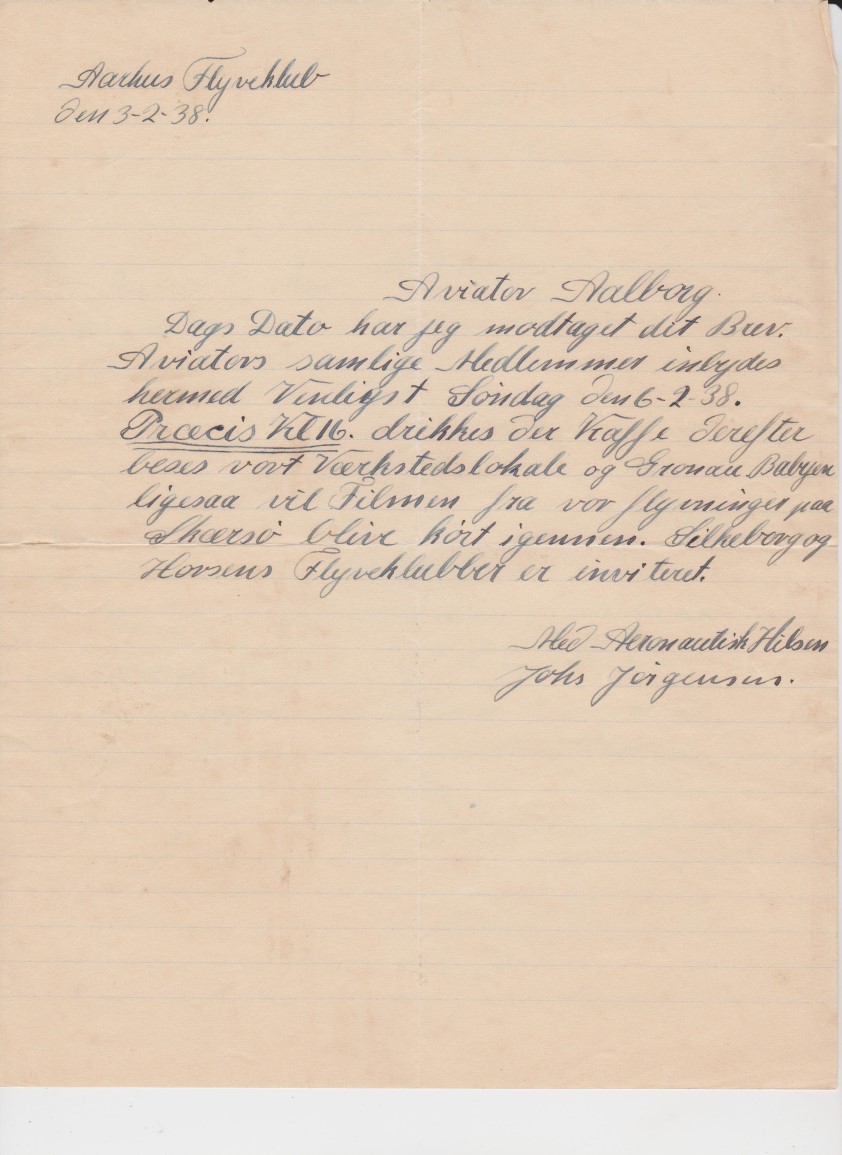 Aarhus Flyveklub
den 3-2-38.
Aviator Aalborg.
Dags Dato har jeg modtaget dit Brev.
Aviators samlige Medlemmer inbydes
hermed Venligst Söndag den 6-2-38.
Præcis Kl 16. drikkes der Kaffe derefter
beses vort Værkstedslokale og Gronau Babyen
ligesaa vil Filmen fra vor flyvninger paa
Skærsö blive kört igennem. Silkeborg og
Horsens Flyveklubber er inviteret.
Med Aeronautisk Hilsen
Johs Jörgensen.